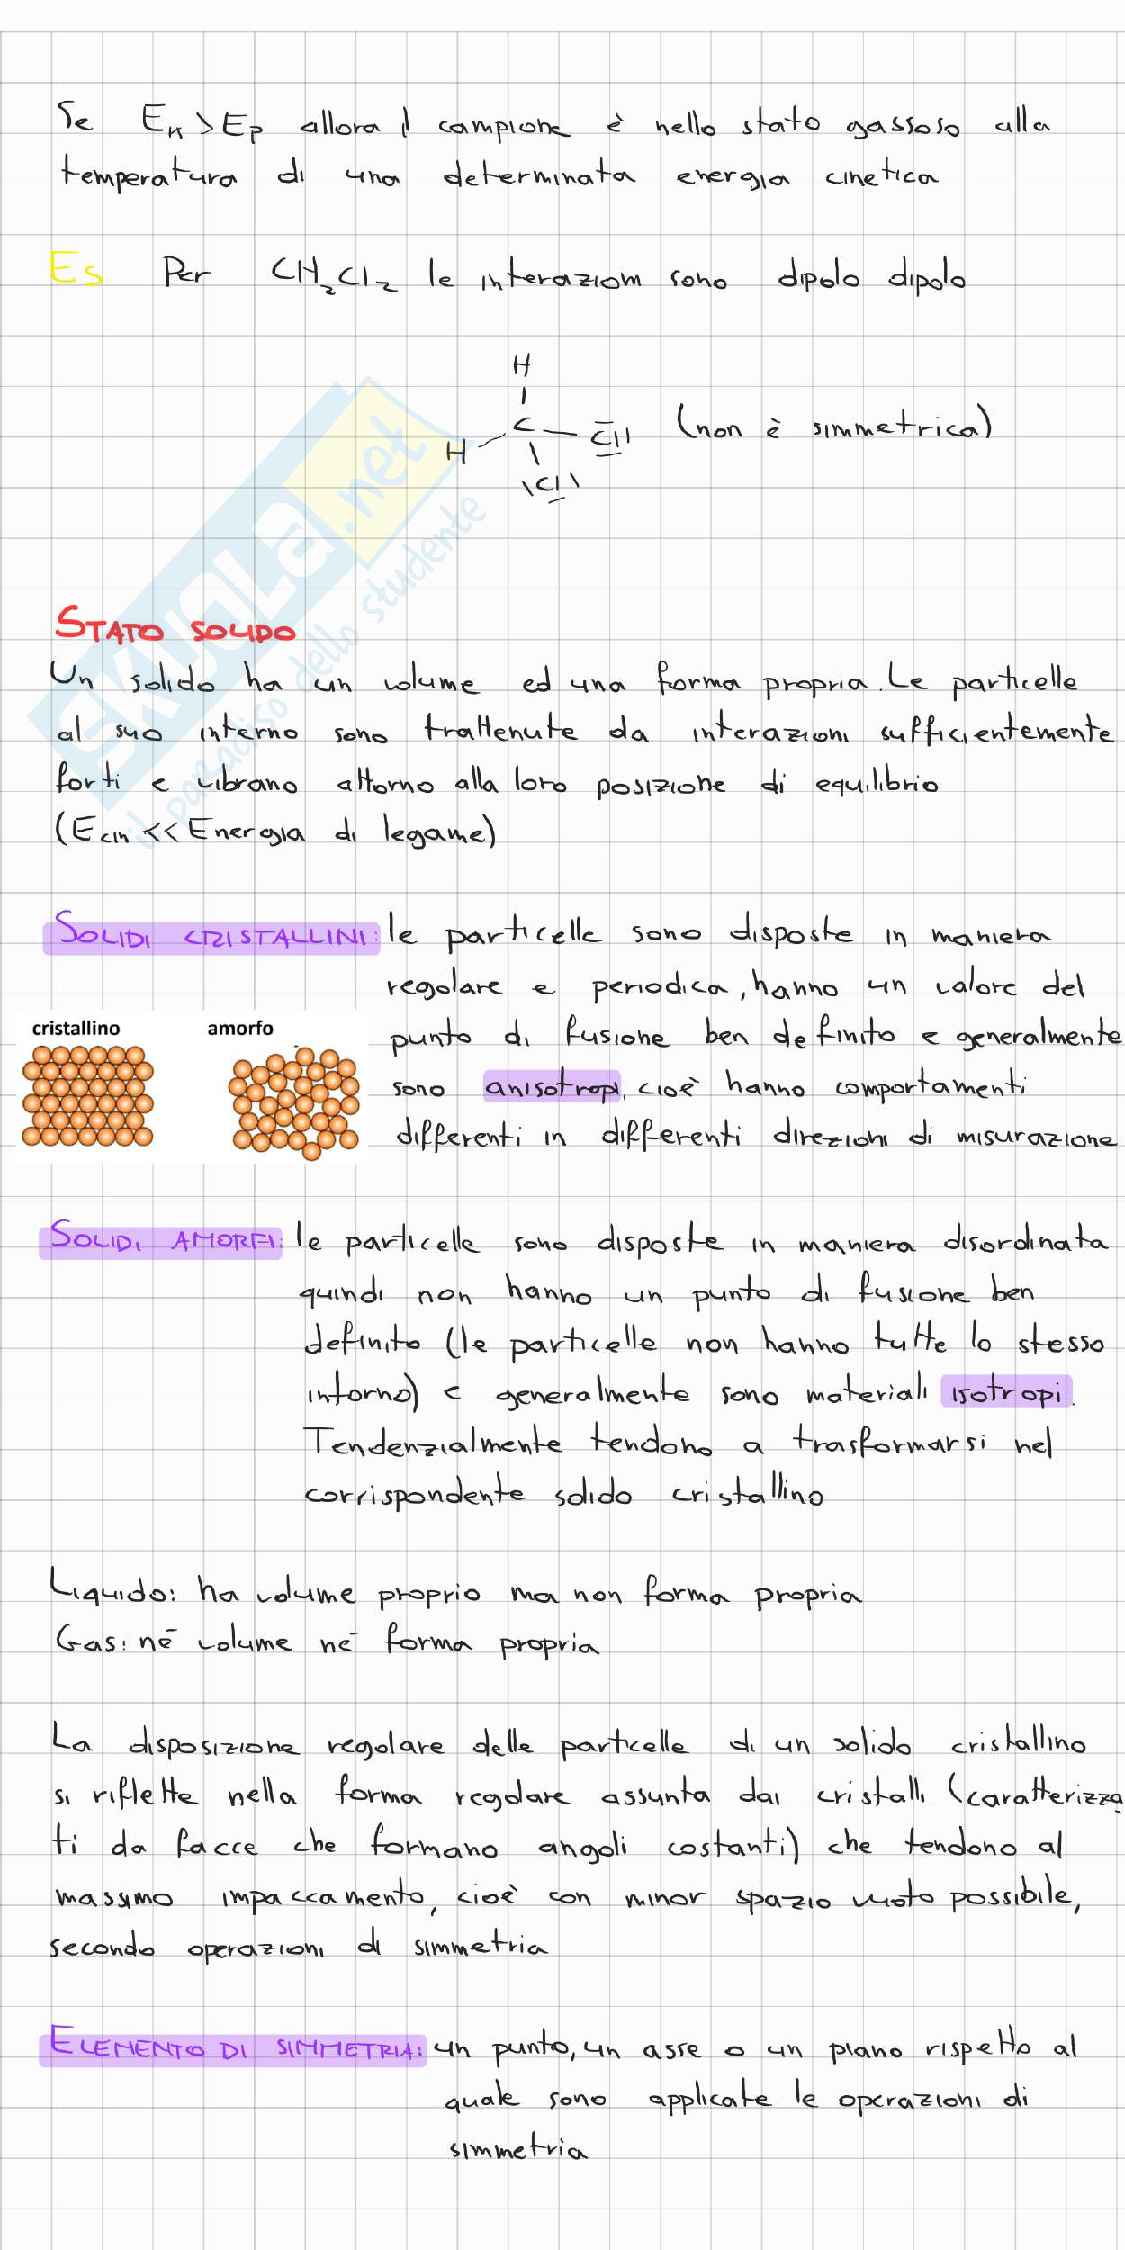 Se Eк > Ep allora il campione è nello stato gassoso alla
temperatura di una determinata energia cinetica
Es Per CH₂Cl₂ le interazioni sono dipolo dipolo
H
H C Cl (non è simmetrica)
Cl
STATO SOLIDO
Un solido ha un volume ed una forma propria. Le particelle
al suo interno sono trattenute da interazioni sufficientemente
forti e vibrano attorno alla loro posizione di equilibrio
(Ecin << Energia di legame)
SOLIDI CRISTALLINI: le particelle sono disposte in maniera
regolare e periodica, hanno un valore del
punto di fusione ben definito e generalmente
sono anisotropi, cioè hanno comportamenti
differenti in differenti direzioni di misurazione
cristallino amorfo
SOLIDI AMORFI: le particelle sono disposte in maniera disordinata
quindi non hanno un punto di fusione ben
definito (le particelle non hanno tutte lo stesso
intorno) e generalmente sono materiali isotropi.
Tendenzialmente tendono a trasformarsi nel
corrispondente solido cristallino
Liquido: ha volume proprio ma non forma propria
Gas: né volume né forma propria
La disposizione regolare delle particelle di un solido cristallino
si riflette nella forma regolare assunta dai cristalli (caratterizza
ti da facce che formano angoli costanti) che tendono al
massimo impaccamento, cioè con minor spazio vuoto possibile,
secondo operazioni di simmetria
ELEMENTO DI SIMMETRIA: un punto, un asse o un piano rispetto al
quale sono applicate le operazioni di
simmetria
SKUOLA.net
il paradiso dello studente